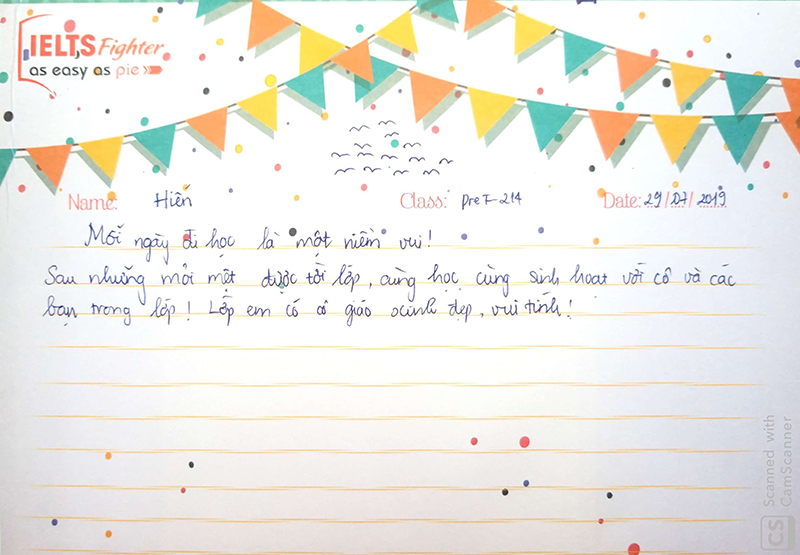 IELTS Fighter
as easy as pie
Name: Hiến Class: Pre I-214 Date: 29/07/2019
Mỗi ngày đi học là một niềm vui!
Sau những mỏi mệt được tới lớp, cùng học cùng sinh hoạt với cô và các
bạn trong lớp! Lớp em có cô giáo xinh đẹp, vui tính!
CS Scanned with
CamScanner